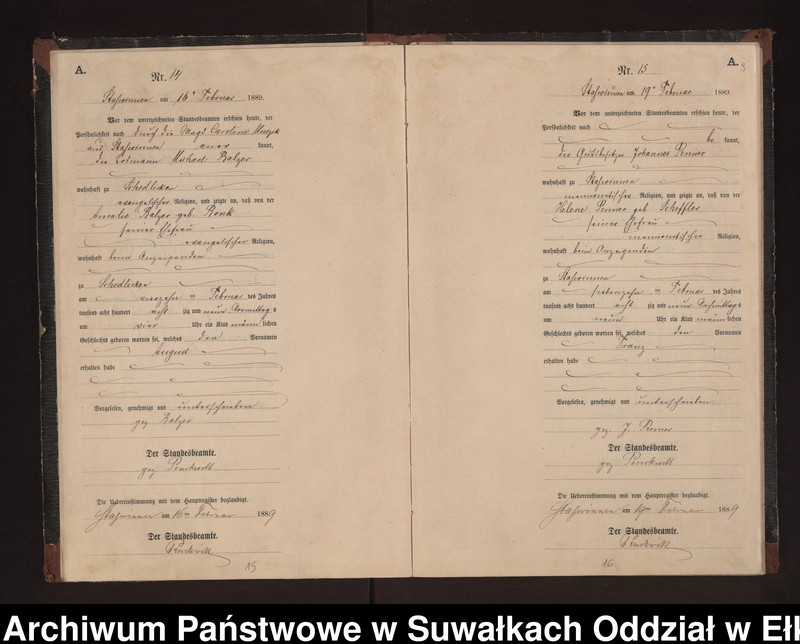 A.
Nr. 14
am 16ⁿ Februar 1889.
Vor dem unterzeichneten Standesbeamten erschien heute, der
Persönlichkeit nach durch die Magd Caroline
aus aner kannt,
der Michael Balzer
wohnhaft zu Schedlisken
evangelischer Religion, und zeigte an, daß von der
Amalie Balzer geb.
seiner Ehefrau
evangelischer Religion,
wohnhaft beim Anzeigenden
zu Schedlisken
am vierzehn ten Februar des Jahres
tausend acht hundert acht zig und neun Vormittags
um vier Uhr ein Kind männlichen
Geschlechts geboren worden sei, welches den Vornamen
August
erhalten habe
Vorgelesen, genehmigt und unterschrieben
gez. Balzer
Der Standesbeamte.
gez.
Die Uebereinstimmung mit dem Hauptregister beglaubigt.
am 16ten Februar 1889
Der Standesbeamte.
15
A.
Nr. 15
am 19ⁿ Februar 1889.
Vor dem unterzeichneten Standesbeamten erschien heute, der
Persönlichkeit nach
be kannt,
der Gutsbesitzer Johannes Penner
wohnhaft zu
mennonitischer Religion, und zeigte an, daß von der
Helene Penner geb. Scheffler
seiner Ehefrau
mennonitischer Religion,
wohnhaft beim Anzeigenden
zu
am siebenzehn ten Februar des Jahres
tausend acht hundert acht zig und neun Nachmittags
um neun Uhr ein Kind männlichen
Geschlechts geboren worden sei, welches den Vornamen
Franz
erhalten habe
Vorgelesen, genehmigt und unterschrieben
gez. J. Penner
Der Standesbeamte.
gez.
Die Uebereinstimmung mit dem Hauptregister beglaubigt.
am 19ten Februar 1889
Der Standesbeamte.
16
Archiwum Państwowe w Suwałkach Oddział w Eł